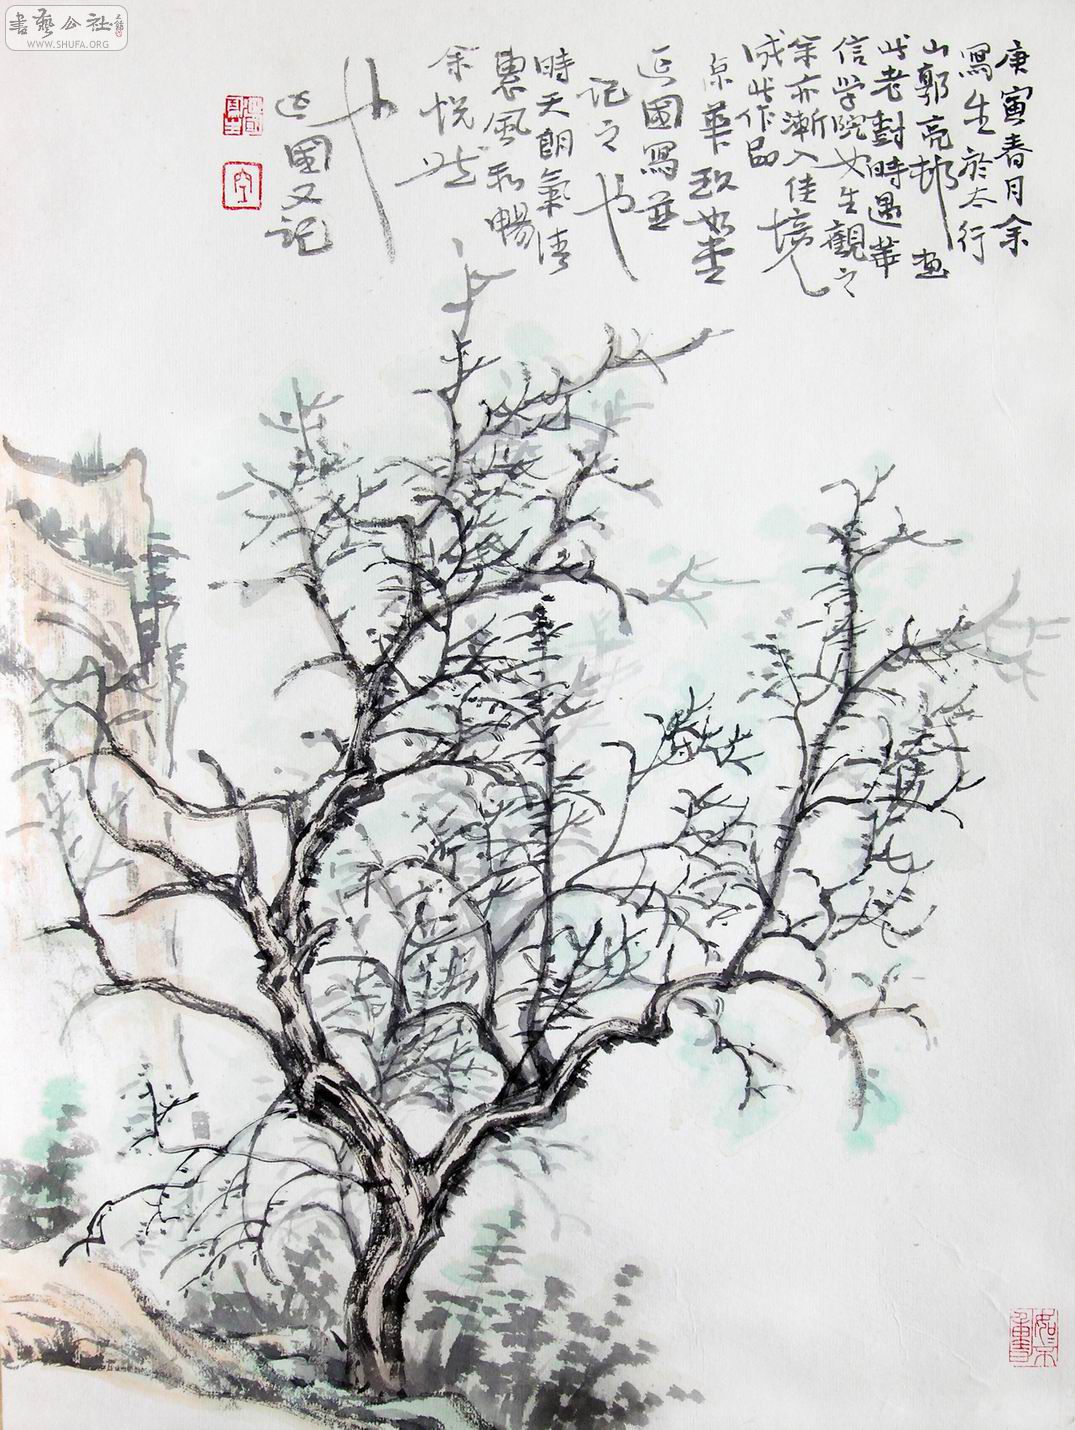 書藝公社
WWW.SHUFA.ORG
庚寅春月余
寫生於太行
山郭亮邨畫
此老樹時遇華
信學院女生觀之
余亦漸入佳境
成此作品
京華
正國寫並
記之也
時天朗氣清
惠風和暢
余悅然
也
正國又記